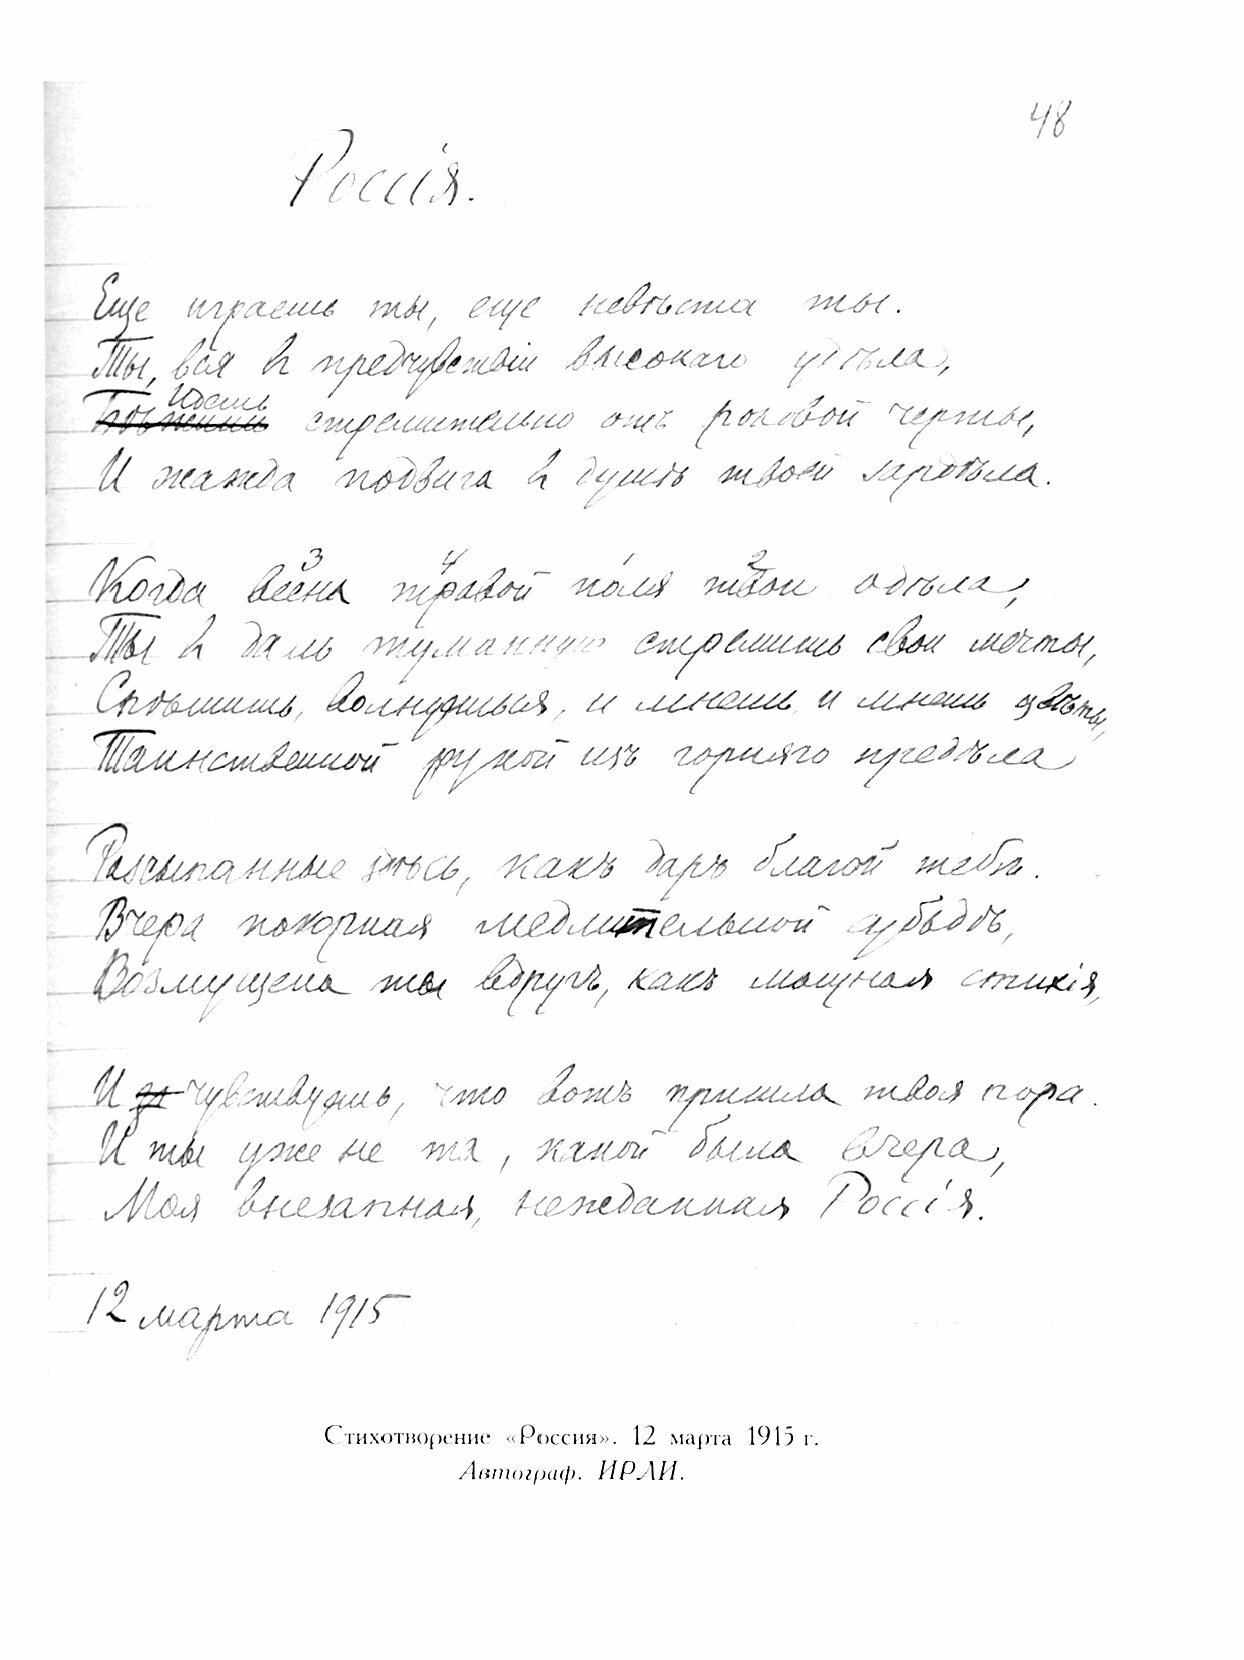 48
Россія.
Еще играешь ты, еще невѣста ты.
Ты, вся въ предчувствіи высокаго удѣла,
Идешь
стремительно отъ роковой черты,
И жажда подвига въ душѣ твоей зардѣла.
3 4 1 2
Когда весна травой поля твои одѣла,
Ты въ даль туманную стремишь свои мечты,
Спѣшишь, волнуешься, и мнешь, и мнешь цвѣты,
Таинственной рукой изъ горняго предѣла
Разсыпанные здѣсь, какъ даръ благой тебѣ.
Вчера покорная медлительной судьбѣ,
Возмущена ты вдругъ, какъ мощная стихія,
И чувствуешь, что вотъ пришла твоя пора.
И ты уже не та, какой была вчера,
Моя внезапная, нежданная Россія.
12 марта 1915
Стихотворение «Россия». 12 марта 1915 г.
Автограф. ИРЛИ.